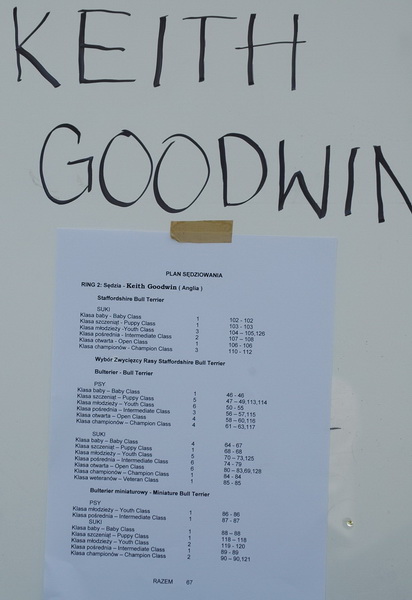 KEITH
GOODWIN
PLAN SĘDZIOWANIA
RING 2: Sędzia - Keith Goodwin ( Anglia )
Staffordshire Bull Terrier
SUKI
Klasa baby - Baby Class 1 102 - 102
Klasa szczeniąt - Puppy Class 1 103 - 103
Klasa młodzieży -Youth Class 3 104 – 105,126
Klasa pośrednia - Intermediate Class 2 107 – 108
Klasa otwarta - Open Class 1 106 - 106
Klasa championów - Champion Class 3 110 - 112
Wybór Zwycięzcy Rasy Staffordshire Bull Terrier
Bulterier - Bull Terrier
PSY
Klasa baby – Baby Class 1 46 - 46
Klasa szczeniąt – Puppy Class 5 47 – 49,113,114
Klasa młodzieży – Youth Class 6 50 - 55
Klasa pośrednia – Intermediate Class 3 56 – 57,115
Klasa otwarta – Open Class 4 58 – 60,116
Klasa championów – Champion Class 4 61 – 63,117
SUKI
Klasa baby – Baby Class 4 64 - 67
Klasa szczeniąt – Puppy Class 1 68 - 68
Klasa młodzieży – Youth Class 5 70 – 73,125
Klasa pośrednia – Intermediate Class 6 74 - 79
Klasa otwarta – Open Class 6 80 – 83,69,128
Klasa championów – Champion Class 1 84 - 84
Klasa weteranów – Veteran Class 1 85 - 85
Bulterier miniaturowy - Miniature Bull Terrier
PSY
Klasa młodzieży – Youth Class 1 86 - 86
Klasa pośrednia – Intermediate Class 1 87 - 87
SUKI
Klasa baby – Baby Class 1 88 – 88
Klasa szczeniąt – Puppy Class 1 118 – 118
Klasa młodzieży – Youth Class 2 119 - 120
Klasa pośrednia – Intermediate Class 1 89 - 89
Klasa championów – Champion Class 2 90 – 90,121
RAZEM 67